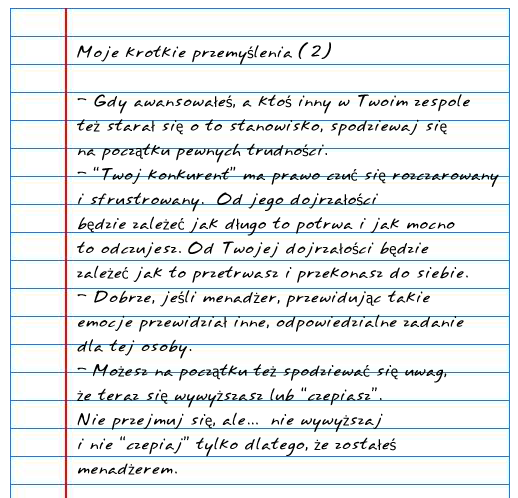 Moje krotkie przemyślenia (2)
- Gdy awansowałeś, a ktoś inny w Twoim zespole
też starał się o to stanowisko, spodziewaj się
na początku pewnych trudności.
- "Twoj konkurent" ma prawo czuć się rozczarowany
i sfrustrowany. Od jego dojrzałości
będzie zależeć jak długo to potrwa i jak mocno
to odczujesz. Od Twojej dojrzałości będzie
zależeć jak to przetrwasz i przekonasz do siebie.
- Dobrze, jeśli menadżer, przewidując takie
emocje przewidział inne, odpowiedzialne zadanie
dla tej osoby.
- Możesz na początku też spodziewać się uwag,
że teraz się wywyższasz lub "czepiasz".
Nie przejmuj się, ale... nie wywyższaj
i nie "czepiaj" tylko dlatego, że zostałeś
menadżerem.